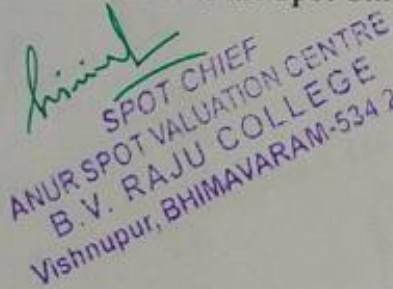 SPOT CHIEF
ANUR SPOT VALUATION CENTRE
B.V. RAJU COLLEGE
Vishnupur, BHIMAVARAM-534 2